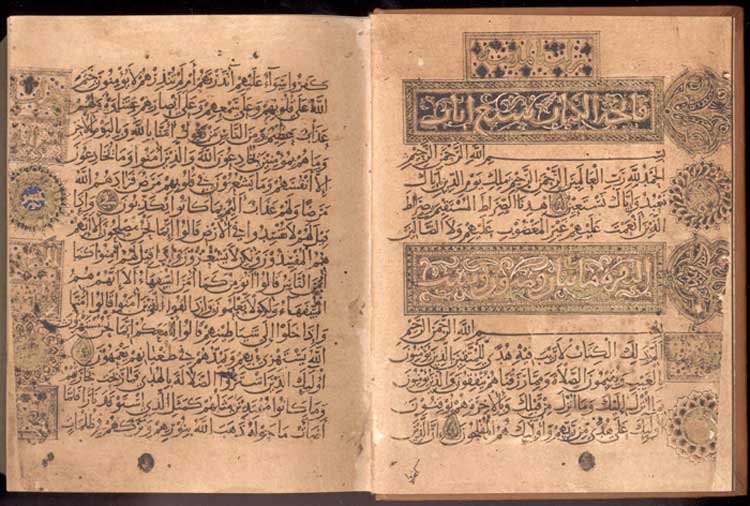 فاتحة الكتاب سبع ايات
بسم الله الرحمن الرحيم
الحمد لله رب العالمين الرحمن الرحيم ملك يوم الدين اياك
نعبد واياك نستعين اهدنا الصراط المستقيم صراط
الذين انعمت عليهم غير المغضوب عليهم ولا الضالين
البقرة مائتان وثمانون وست
بسم الله الرحمن الرحيم
الم ذلك الكتاب لا ريب فيه هدى للمتقين الذين يؤمنون
بالغيب ويقيمون الصلاة ومما رزقناهم ينفقون والذين يؤمنون
بما انزل اليك وما انزل من قبلك وبالاخرة هم يوقنون
اولئك على هدى من ربهم واولئك هم المفلحون ان الذين
كفروا
كفروا سواء عليهم أنذرتهم أم لم تنذرهم لا يؤمنون ختم
الله على قلوبهم وعلى سمعهم وعلى أبصارهم غشاوة ولهم
عذاب عظيم ومن الناس من يقول امنا بالله وباليوم الاخر
وما هم بمؤمنين يخادعون الله والذين امنوا وما يخادعون
الا أنفسهم وما يشعرون في قلوبهم مرض فزادهم الله
مرضا ولهم عذاب اليم بما كانوا يكذبون واذا
قيل لهم لا تفسدوا في الأرض قالوا انما نحن مصلحون ألا انهم
هم المفسدون ولكن لا يشعرون واذا قيل لهم امنوا كما
امن الناس قالوا أنؤمن كما امن السفهاء ألا انهم هم
السفهاء ولكن لا يعلمون واذا لقوا الذين امنوا قالوا امنا
واذا خلوا الى شياطينهم قالوا انا معكم انما نحن مستهزؤن
الله يستهزئ بهم ويمدهم في طغيانهم يعمهون
اولئك الذين اشتروا الضلالة بالهدى فما ربحت تجارتهم
وما كانوا مهتدين مثلهم كمثل الذي استوقد نارا فلما
أضاءت ما حوله ذهب الله بنورهم وتركهم في ظلمات